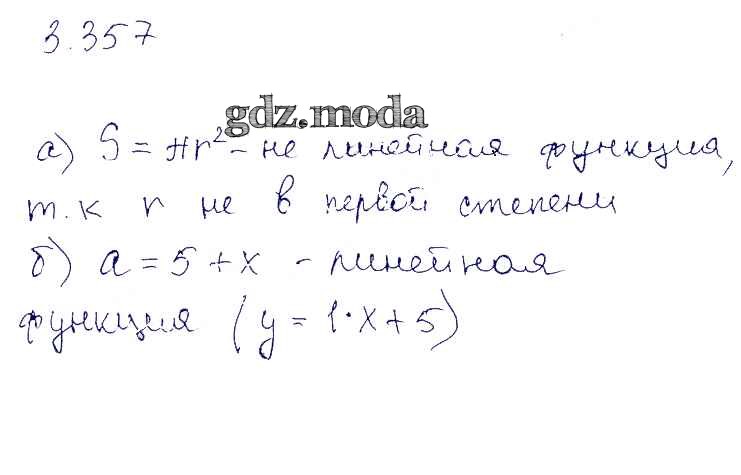 3.357
gdz.moda
а) S = πr² – не линейная функция,
т.к r не в первой степени
б) a = 5 + x – линейная
функция (y = 1·x + 5)